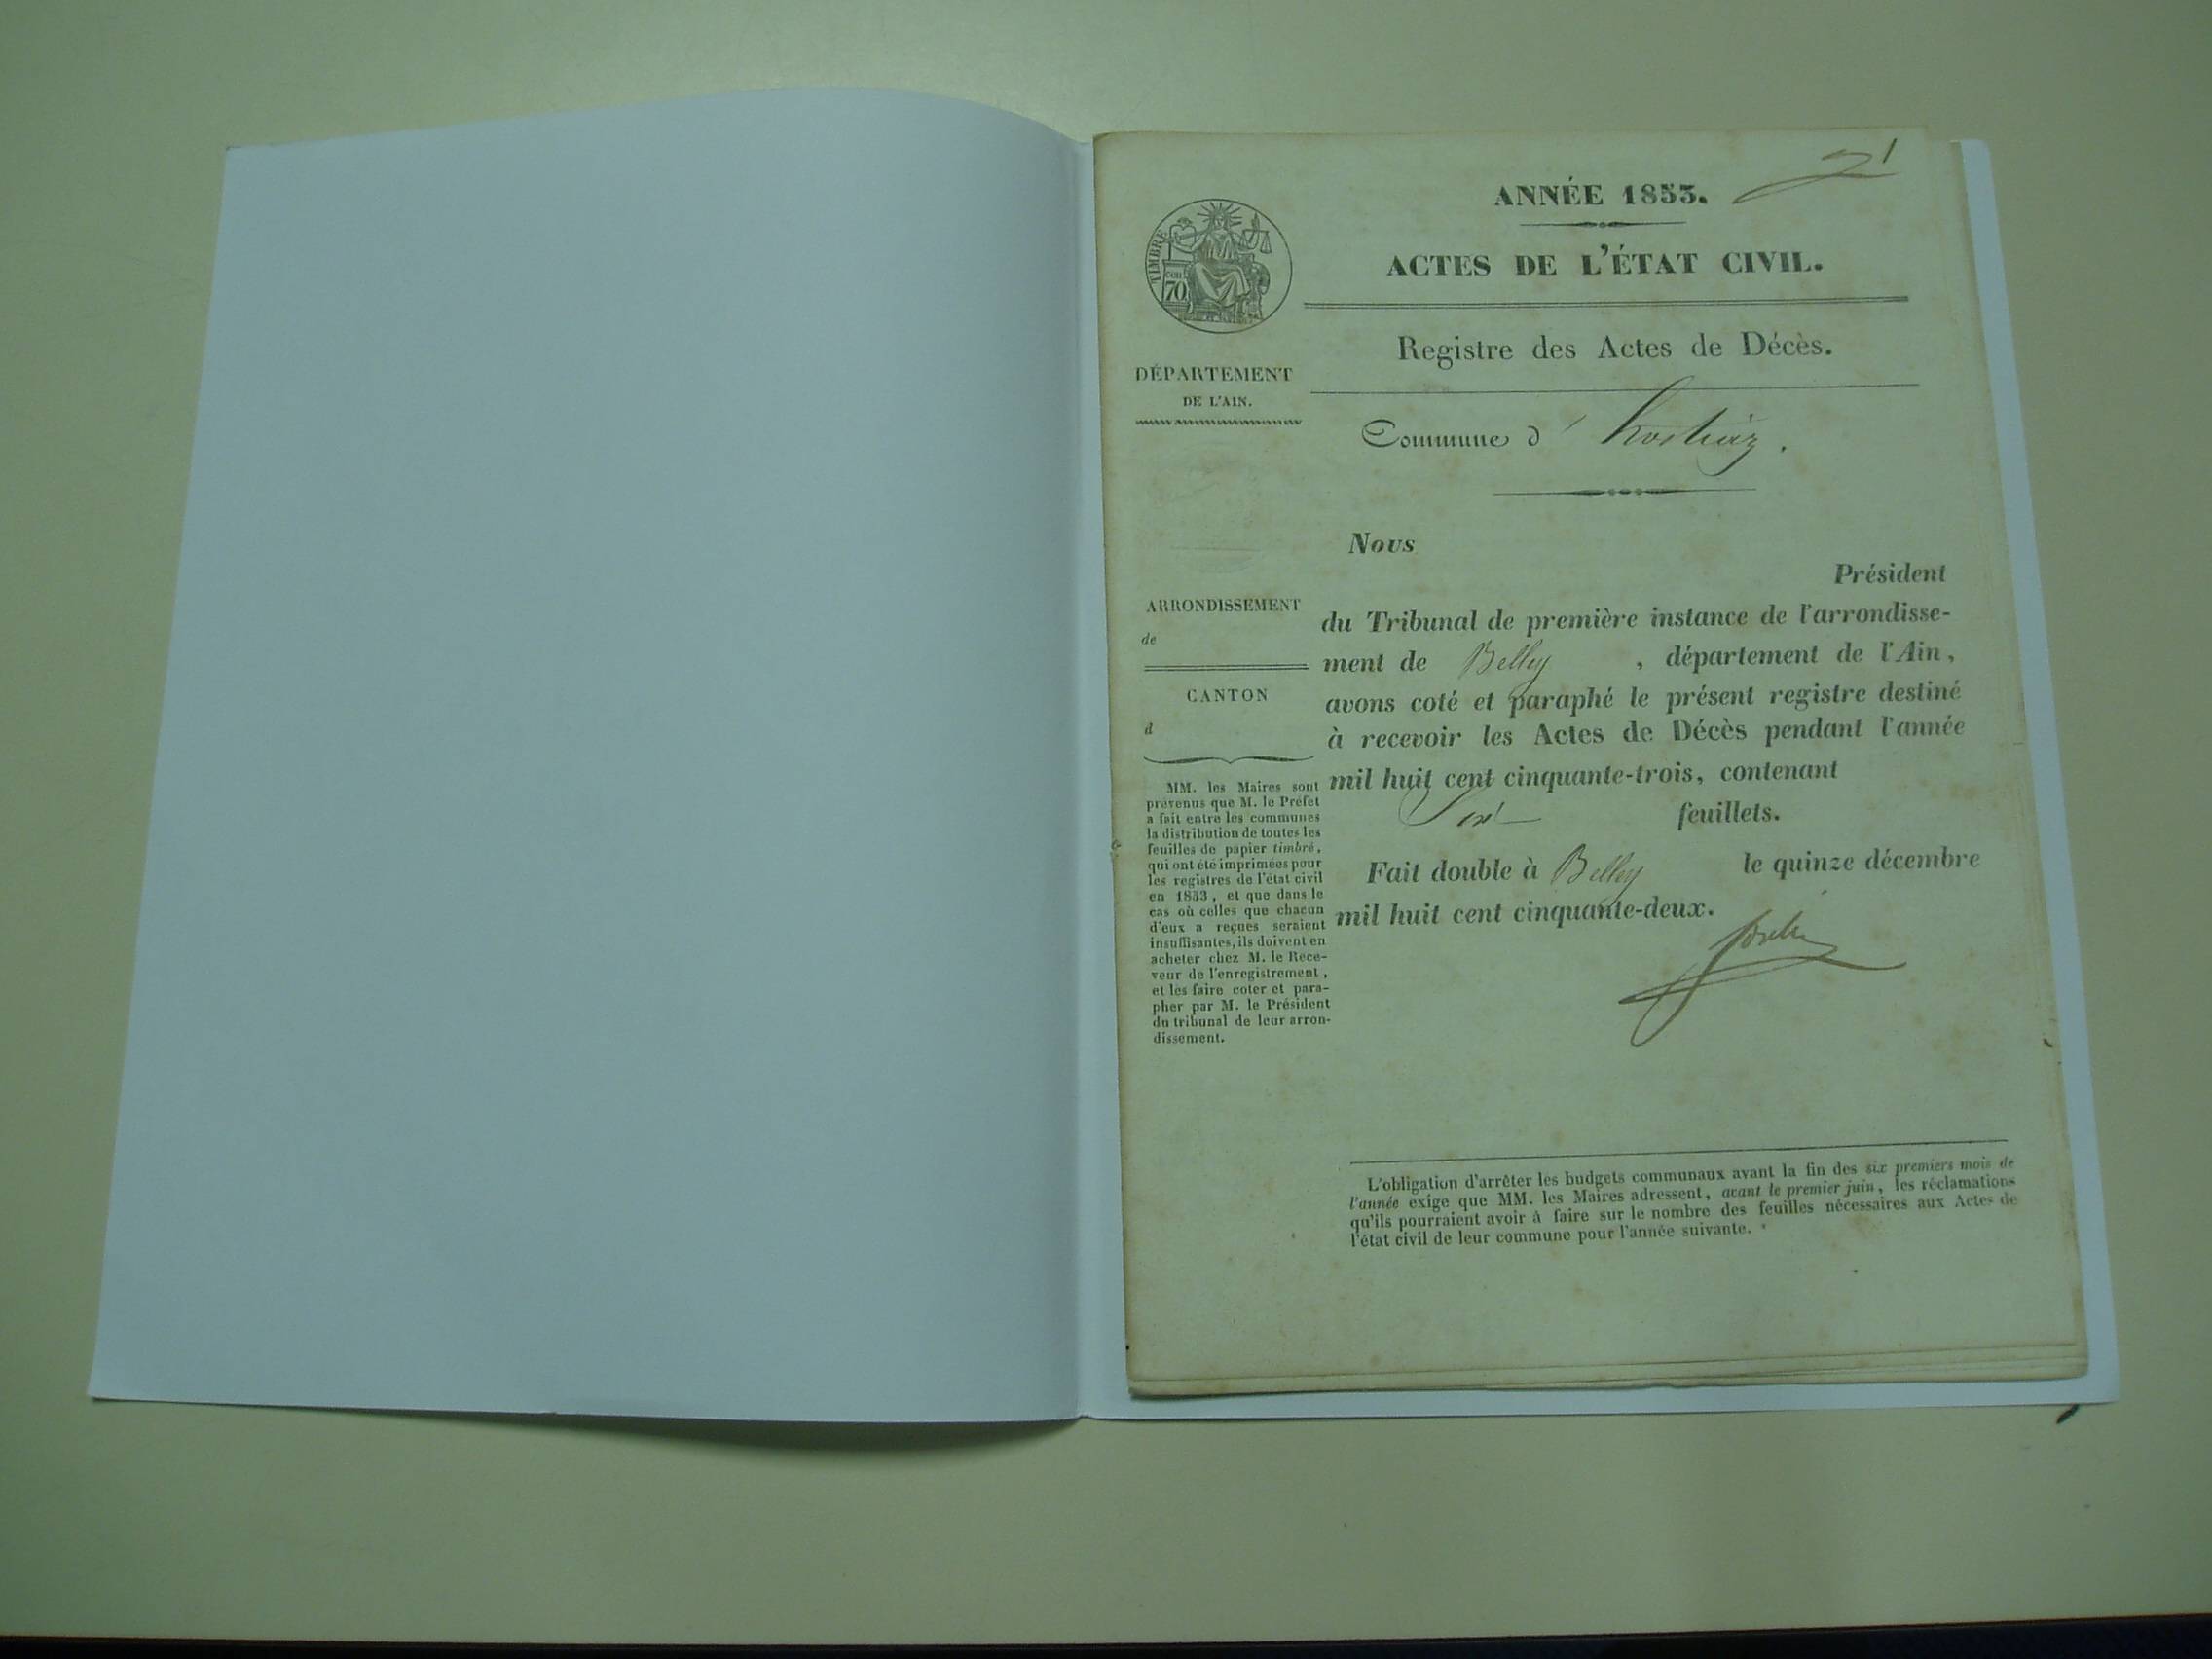 1
ANNÉE 1853.
ACTES DE L'ÉTAT CIVIL.
TIMBRE
cen
70
Registre des Actes de Décès.
DÉPARTEMENT
DE L'AIN.
Commune d'
Nous
Président
du Tribunal de première instance de l'arrondisse-
ment de Belley , département de l'Ain,
avons coté et paraphé le présent registre destiné
à recevoir les Actes de Décès pendant l'année
mil huit cent cinquante-trois, contenant
Six feuillets.
Fait double à Belley le quinze décembre
mil huit cent cinquante-deux.
ARRONDISSEMENT
de
CANTON
d
MM. les Maires sont
prévenus que M. le Préfet
a fait entre les communes
la distribution de toutes les
feuilles de papier timbré,
qui ont été imprimées pour
les registres de l'état civil
en 1853, et que dans le
cas où celles que chacun
d'eux a reçues seraient
insuffisantes, ils doivent en
acheter chez M. le Rece-
veur de l'enregistrement,
et les faire coter et para-
pher par M. le Président
du tribunal de leur arron-
dissement.
L'obligation d'arrêter les budgets communaux avant la fin des six premiers mois de
l'année exige que MM. les Maires adressent, avant le premier juin, les réclamations
qu'ils pourraient avoir à faire sur le nombre des feuilles nécessaires aux Actes de
l'état civil de leur commune pour l'année suivante.